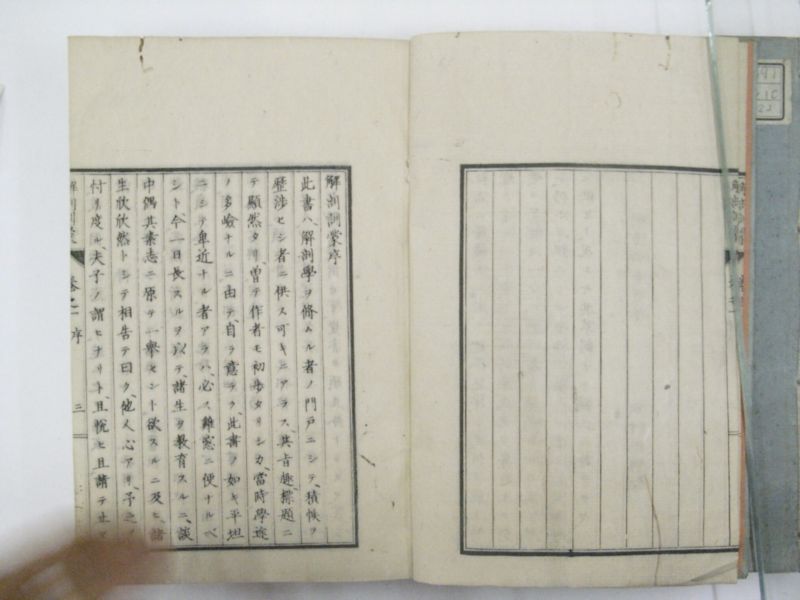 解剖訓蒙序
此書ハ、解剖學ヲ脩ムル者ノ門戸ニシテ、積帙ヲ
歴渉セシ者ニ供ス可キニアラス、其旨趣、標題ニ
テ顯然タリ、曽テ作者モ初歩タリシカ、當時學途
ノ多嶮ナルニ由テ、自ラ意ラク、此書ノ如キ平坦
ニシテ卑近ナル者アラハ、必ス難窓ニ便ナルベ
シト、今、一日長スルヲ以テ、諸生ヲ教育スルニ、談
中偶其素志ニ原テ一舉セント欲スルニ及ヒ、諸
生欣欣然トシテ相告テ曰ク、他人心アリ、予之ヲ
忖度ル、夫子ノ謂ヒナリト、且悦ヒ且請テ止マ
解剖訓蒙
卷之一
序
三